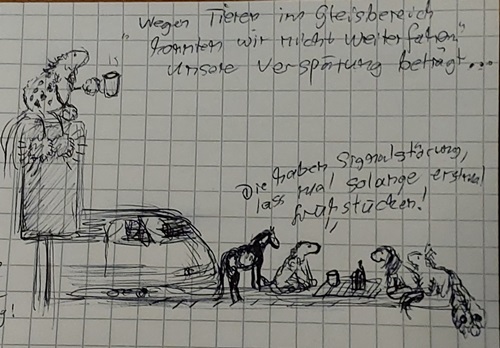 "Wegen Tieren im Gleisbereich
konnten wir nicht weiterfahren."
Unsere Verspätung beträgt...
Die haben Signalstörung,
lass mal solange erstmal
frühstücken!
g!